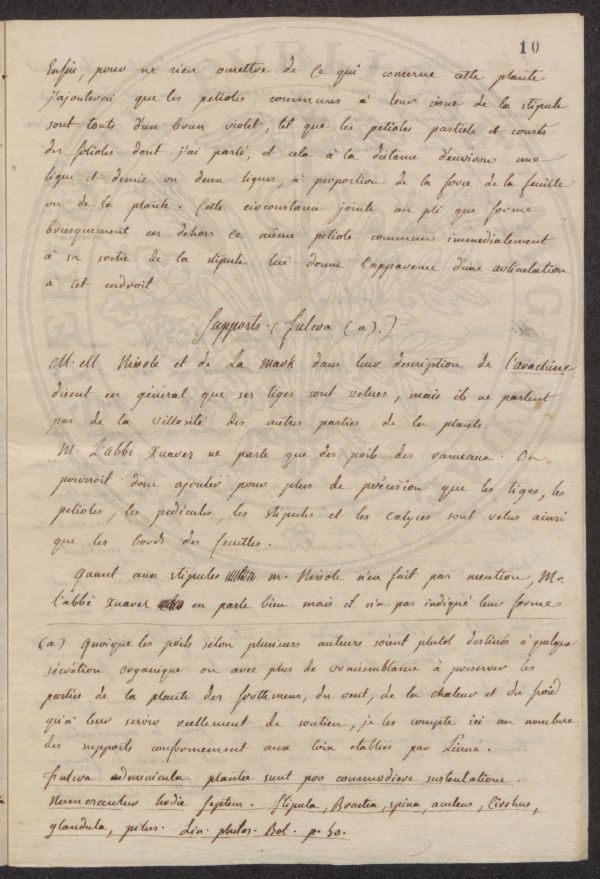 10
Enfin, pour ne rien omettre de ce qui concerne cette plante
j'ajouterai que les petioles communs à leur issue de la stipule
sont touts d'un brun violet, tel que les petioles partiels et courts
des folioles dont j'ai parlé, et cela à la distance d'environ une
ligne et demie ou deux lignes, à proportion de la force de la feuille
ou de la plante. Cette circonstance jointe au pli que forme
brusquement en dehors ce même petiole commun immediatement
à sa sortie de la stipule lui donne l'apparence d'une articulation
à cet endroit
Supports. (fulcra (a).)
M. M Nissole et de La mark dans leur description de l'arachine
disent en général que ses tiges sont velues, mais ils ne parlent
pas de la villosité des autres parties de la plante
M L'abbé Xuarez ne parle que des poils des rameaux. On
pourroit donc ajouter pour plus de précision que les tiges, les
petioles, les pedicules, les stipules et les calyces sont velus ainsi
que les bords des feuilles.
Quant aux stipules m. Nissole n'en fait pas mention, Mr.
l'abbé Xuarez en parle bien mais il n'a pas indiqué leur forme
(a) Quoique les poils sélon plusieurs auteurs soient plutot destinés à quelque
sécrétion organique ou avec plus de vraisemblance à préserver les
parties de la plante des frottemens, du vent, de la chaleur et du froid
qu'à leur servir reellement de soutien, je les compte ici au nombre
des supports conformement aux loix etablies par Linné.
fulcra adminicula plantæ sunt pro commodiore sustentatione.
Numerantur hodie septem. Stipula, Bractea, spina, aculeus, Cirrhus,
glandula, pilus. Lin. philos. Bot. p. 50.